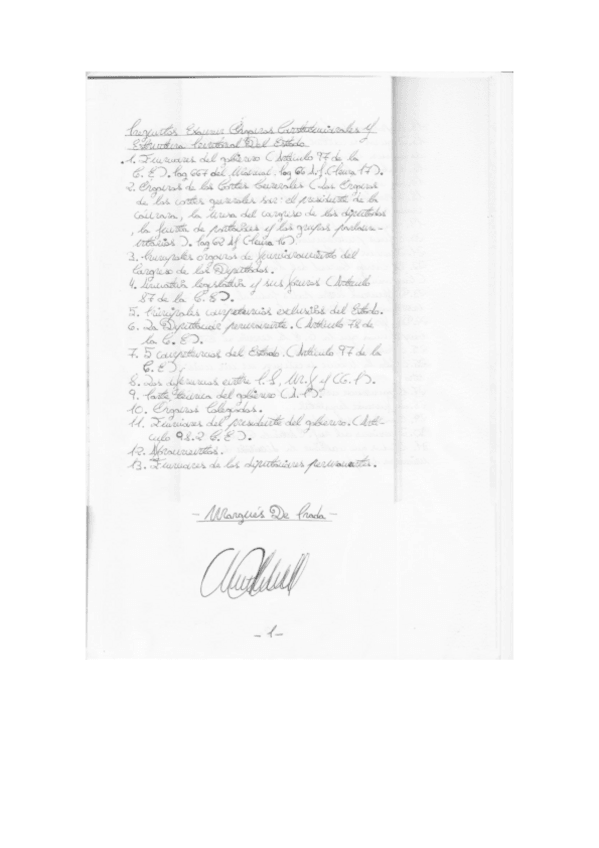 Preguntas Examen Órganos Constitucionales y
Estructura Territorial Del Estado
1. Funciones del gobierno (Artículo 97 de la
C.E). Pag 667 del Manual. Pag 66 A.J (Clara 17).
2. Órganos de las Cortes Generales (Los Órganos
de las cortes generales son: el presidente de la
cámara, la mesa del congreso de los diputados
, la junta de portavoces y los grupos parlamen-
tarios). Pag 62 AJ (Clara 16).
3. Principales órganos de funcionamiento del
Congreso de los Diputados.
4. Iniciativa legislativa y sus formas (Artículo
87 de la C.E).
5. Principales competencias exclusivas del Estado.
6. La Diputación permanente. (Artículo 78 de
la C.E).
7. 5 competencias del Estado. (Artículo 97 de la
C.E)
8. Las diferencias entre
9. Parte técnica del gobierno
10. Órganos Colegiados.
11. Funciones del presidente del gobierno. (Artí-
culo 98.2 C.E).
12.
13. Funciones de las diputaciones permanentes.
- Marqués De Prada -
- 1 -